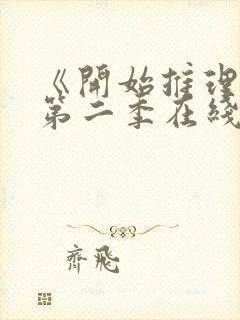 《開始推理
第二季在綫
齊飛